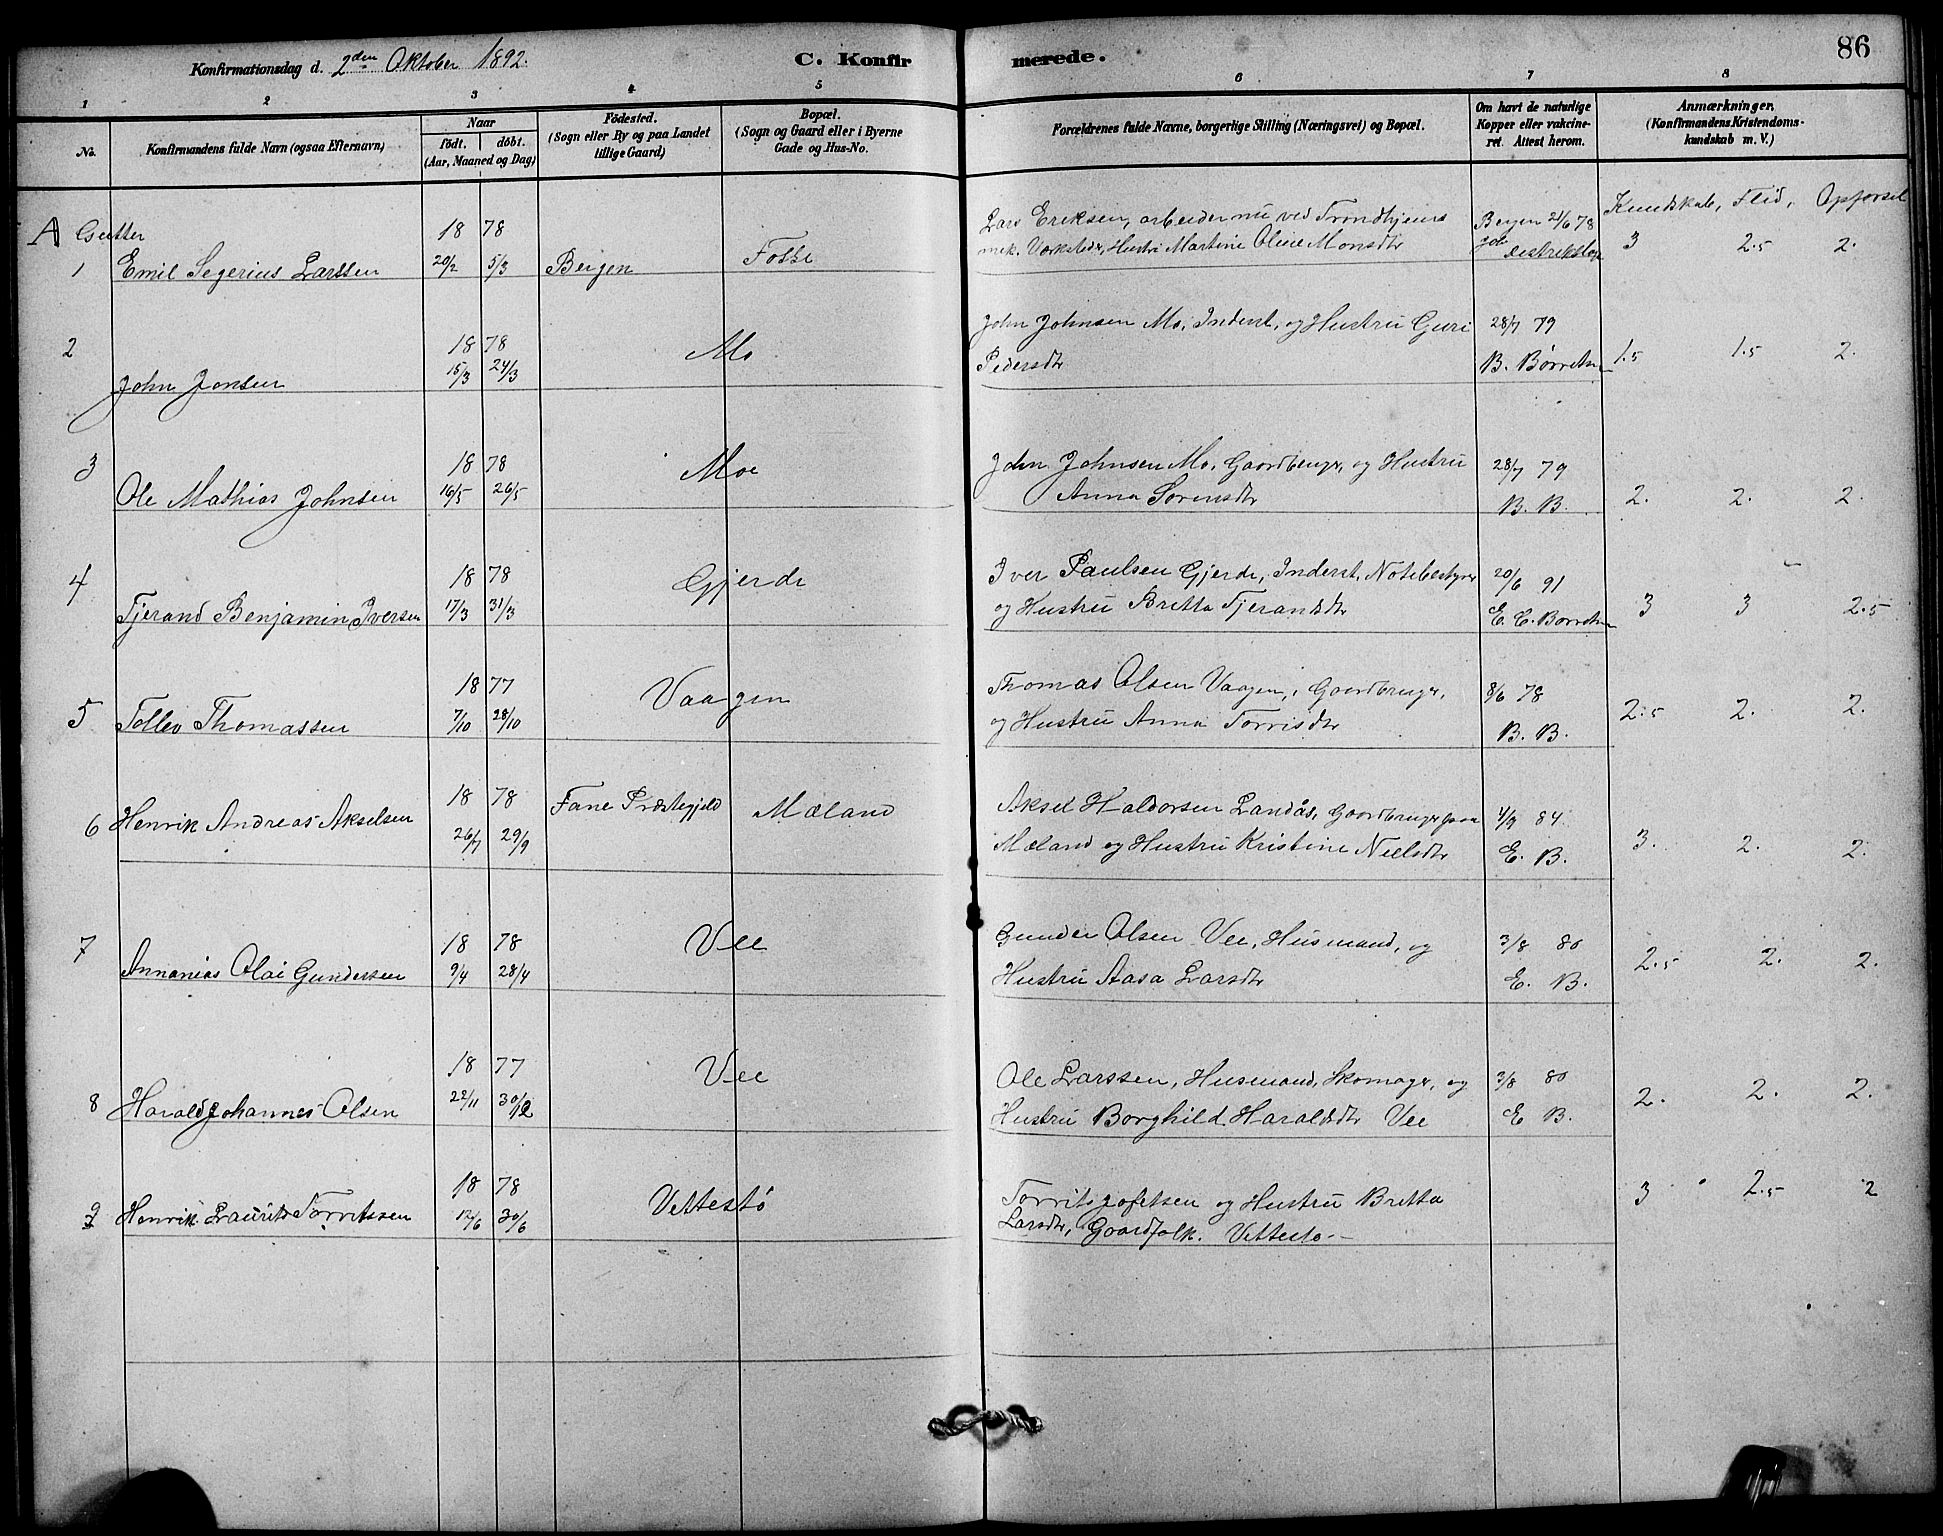 Konfirmationsdag d. 2den Oktober 1892.
C. Konfirmerede.
86
1 2 3 4 5 6 7 8
No.
Konfirmandens fulde Navn (ogsaa Efternavn)
Naar
födt. döbt.
(Aar, Maaned og Dag)
Födested.
(Sogn eller By og paa Landet
tillige Gaard)
Bopæl.
(Sogn og Gaard eller i Byerne
Gade og Hus-No.
Forældrenes fulde Navne, borgerlige Stilling (Næringsvei) og Bopæl.
Om havt de naturlige
Kopper eller vakcine-
ret. Attest herom.
Anmærkninger.
(Konfirmandens Kristendoms-
kundskab m. V.)
Kundskab, Flid, Opførsel
A Gutter
1 Emil Segerius Larssen 18 78 20/2 5/3 Bergen Fosse
Lars Eriksen, arbeider nu ved Trondhjems
mek. Værksteder, Hustru Martine Oline Monsdtr
Bergen 21/6 78
3 2.5 2.
2 John Jonsen 18 78 15/3 24/3 Mo
John Johnsen Mo, Inderst, og Hustru Guri
Pedersdtr
28/7 79
B. Børretsen
1.5 1.5 2.
3 Ole Mathias Johnsen 18 78 16/5 26/5 Moe
John Johnsen Mo, Gaardbruger, og Hustru
Anna Sørensdtr
28/7 79
B. B.
2. 2. 2.
4 Tjerand Benjamin Iversen 18 78 17/3 31/3 Gjerde
Iver Paulsen Gjerde, Inderst, Notebestyrer
og Hustru Britta Tjerandsdtr
20/6 91
E. C. Børretsen
3 3 2.5
5 Tollev Thomassen 18 77 7/10 28/10 Vaagen
Thomas Olsen Vaagen, Gaardbruger,
og Hustru Anna Torrisdtr
8/6 78
B. B.
2.5 2. 2.
6 Henrik Andreas Akselsen 18 78 26/7 29/9 Fane Præstegjeld Mæland
Aksel Haldorsen Landås, Gaardbruger paa
Mæland og Hustru Kristine Nielsdtr
4/9 84.
E. B.
3. 2. 2.
7 Annanias Olai Gundersen 18 78 9/4 28/4 Vee
Gunder Olsen Vee, Husmand, og
Hustru Aasa Larsdtr
3/8 80
E. B.
2.5 2. 2.
8 Harald Johannes Olsen 18 77 22/11 30/12 Vee
Ole Larssen, Husmand, Skomager, og
Hustru Borghild Haraldsdtr Vee
3/8 80
E B.
2. 2. 2.
9 Henrik Laurits Torritssen 18 78 12/6 30/6 Vettestö
Torrits Jofetsen og Hustru Britta
Larsdtr, Gaardfolk. Vettestø.
3 2.5 2